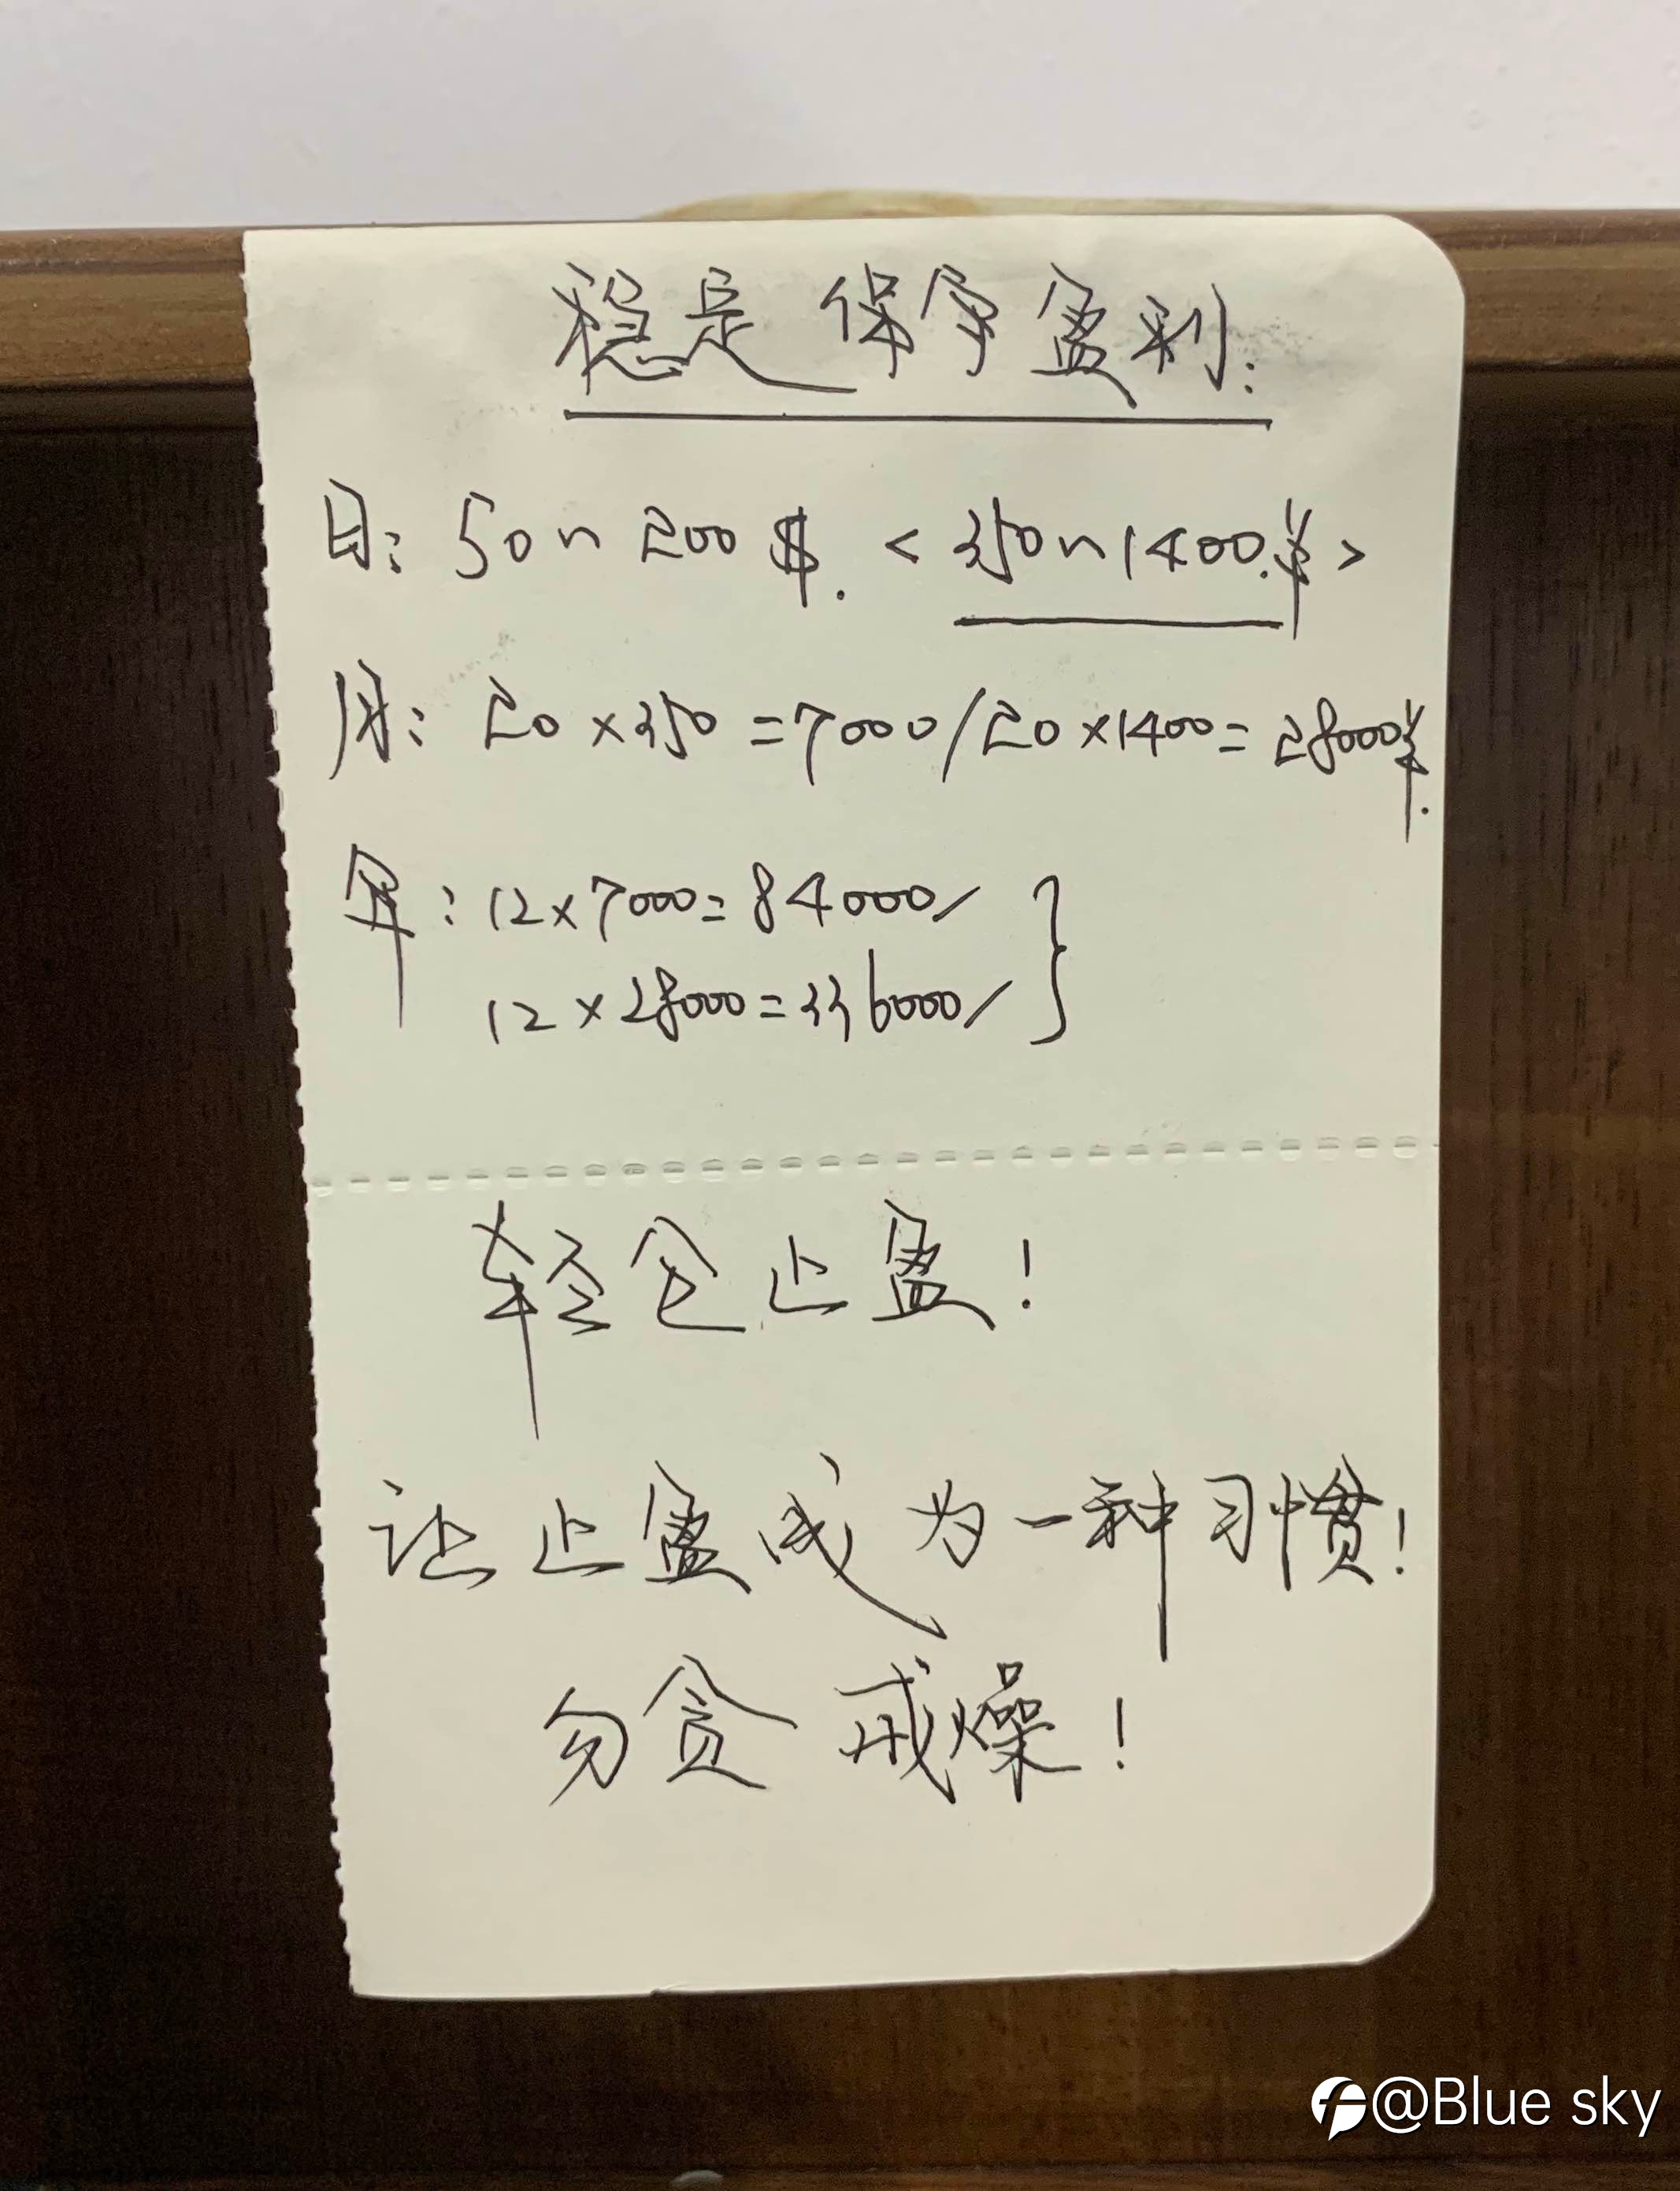 稳定保守盈利:
日: 50~200$. <350~1400.¥>
月: 20×350=7000/20×1400=28000¥.
年: 12×7000=84000/
12×28000=336000/ }
轻仓止盈!
让止盈成为一种习惯!
勿贪戒燥!
@Blue sky